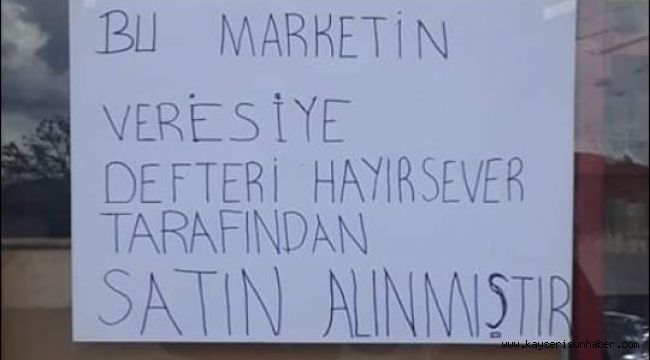 BU MARKETİN
VERESİYE
DEFTERİ HAYIRSEVER
TARAFINDAN
SATIN ALINMIŞTIR
www.kayserisunhaber.com